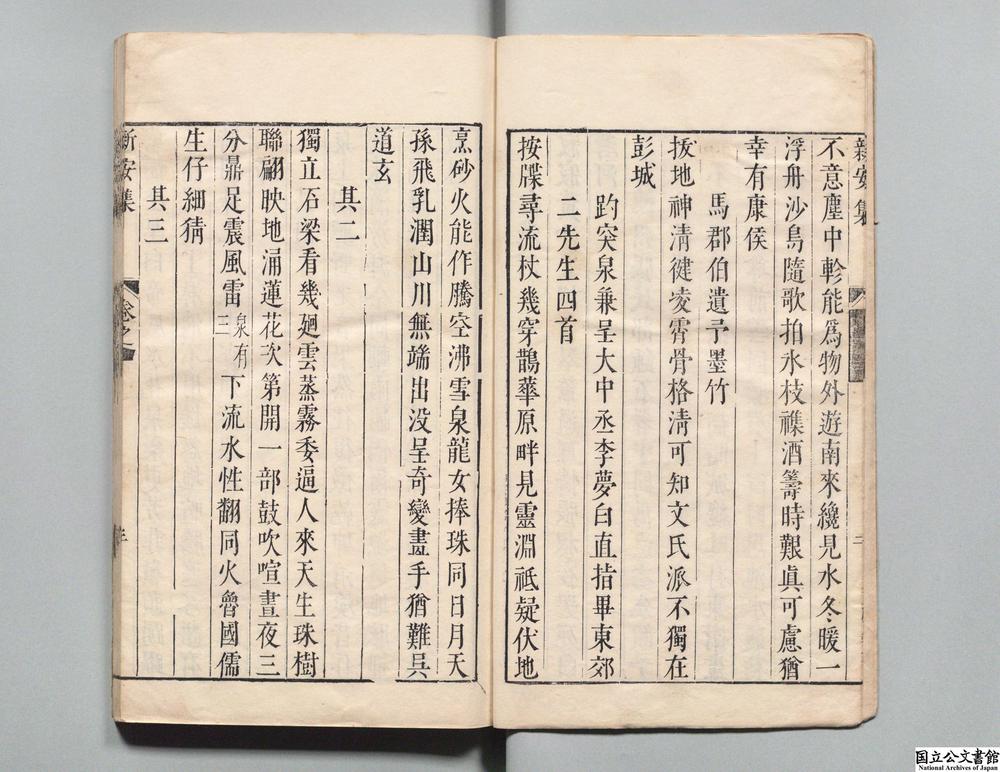 新安集
三
不意塵中軫能爲物外遊南來纔見水冬暖一
浮舟沙鳥隨歌拍水枝襍酒籌時艱眞可慮猶
幸有康侯
馬郡伯遺予墨竹
拔地神清健凌霄骨格淸可知文氏派不獨在
彭城
趵突泉兼呈大中丞李夢白直指畢東郊
二先生四首
按牒尋流杖幾穿鵲華原畔見靈淵祗疑伏地
烹砂火能作騰空沸雪泉龍女捧珠同日月天
孫飛乳潤山川無端出没呈奇變畫手猶難吳
道玄
其二
獨立石梁看幾廻雲蒸霧委逼人來天生珠樹
聯翩映地涌蓮花次第開一部鼓吹喧晝夜三
分鼎足震風雷泉有三下流水性翻同火魯國儒
生仔細猜
其三
新安集
卷之
三
国立公文書館
National Archives of Japan